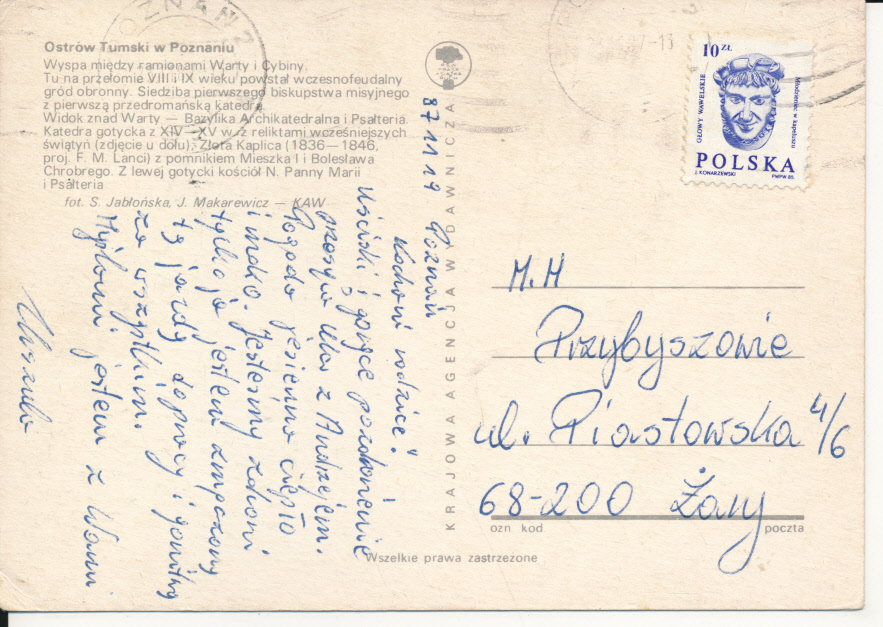 Ostrów Tumski w Poznaniu
Wyspa między ramionami Warty i Cybiny.
Tu na przełomie VIII i IX wieku powstał wczesnofeudalny
gród obronny. Siedziba pierwszego biskupstwa misyjnego
z pierwszą przedromańską katedrą.
Widok znad Warty — Bazylika Archikatedralna i Psałteria.
Katedra gotycka z XIV—XV w. z reliktami wcześniejszych
świątyń (zdjęcie u dołu). Złota Kaplica (1836—1846,
proj. F. M. Lanci) z pomnikiem Mieszka I i Bolesława
Chrobrego. Z lewej gotycki kościół N. Panny Marii
i Psałteria
fot. S. Jabłońska, J. Makarewicz — KAW
POZNAŃ 2
87 11 19 Poznań
Kochani rodzice!
Uściski i gorące pozdrowienia
przesyła Ula z Andrzejem.
Pogoda jesienna ciepło
i mokro. Jesteśmy zdrowi
tylko ja jestem zmęczony
tą jazdą do pracy i gonitwą
za wszystkim.
Myślami jestem z Wami
Urszula
KRAJOWA AGENCJA WYDAWNICZA
10 ZŁ
GŁOWY WAWELSKIE
Młodzieniec w kapeluszu
POLSKA
J. KONARZEWSKI
PWPW 85.
M.H
Przybyszowie
ul. Piastowska 4/6
68-200 Żary
ozn. kod
poczta
Wszelkie prawa zastrzeżone